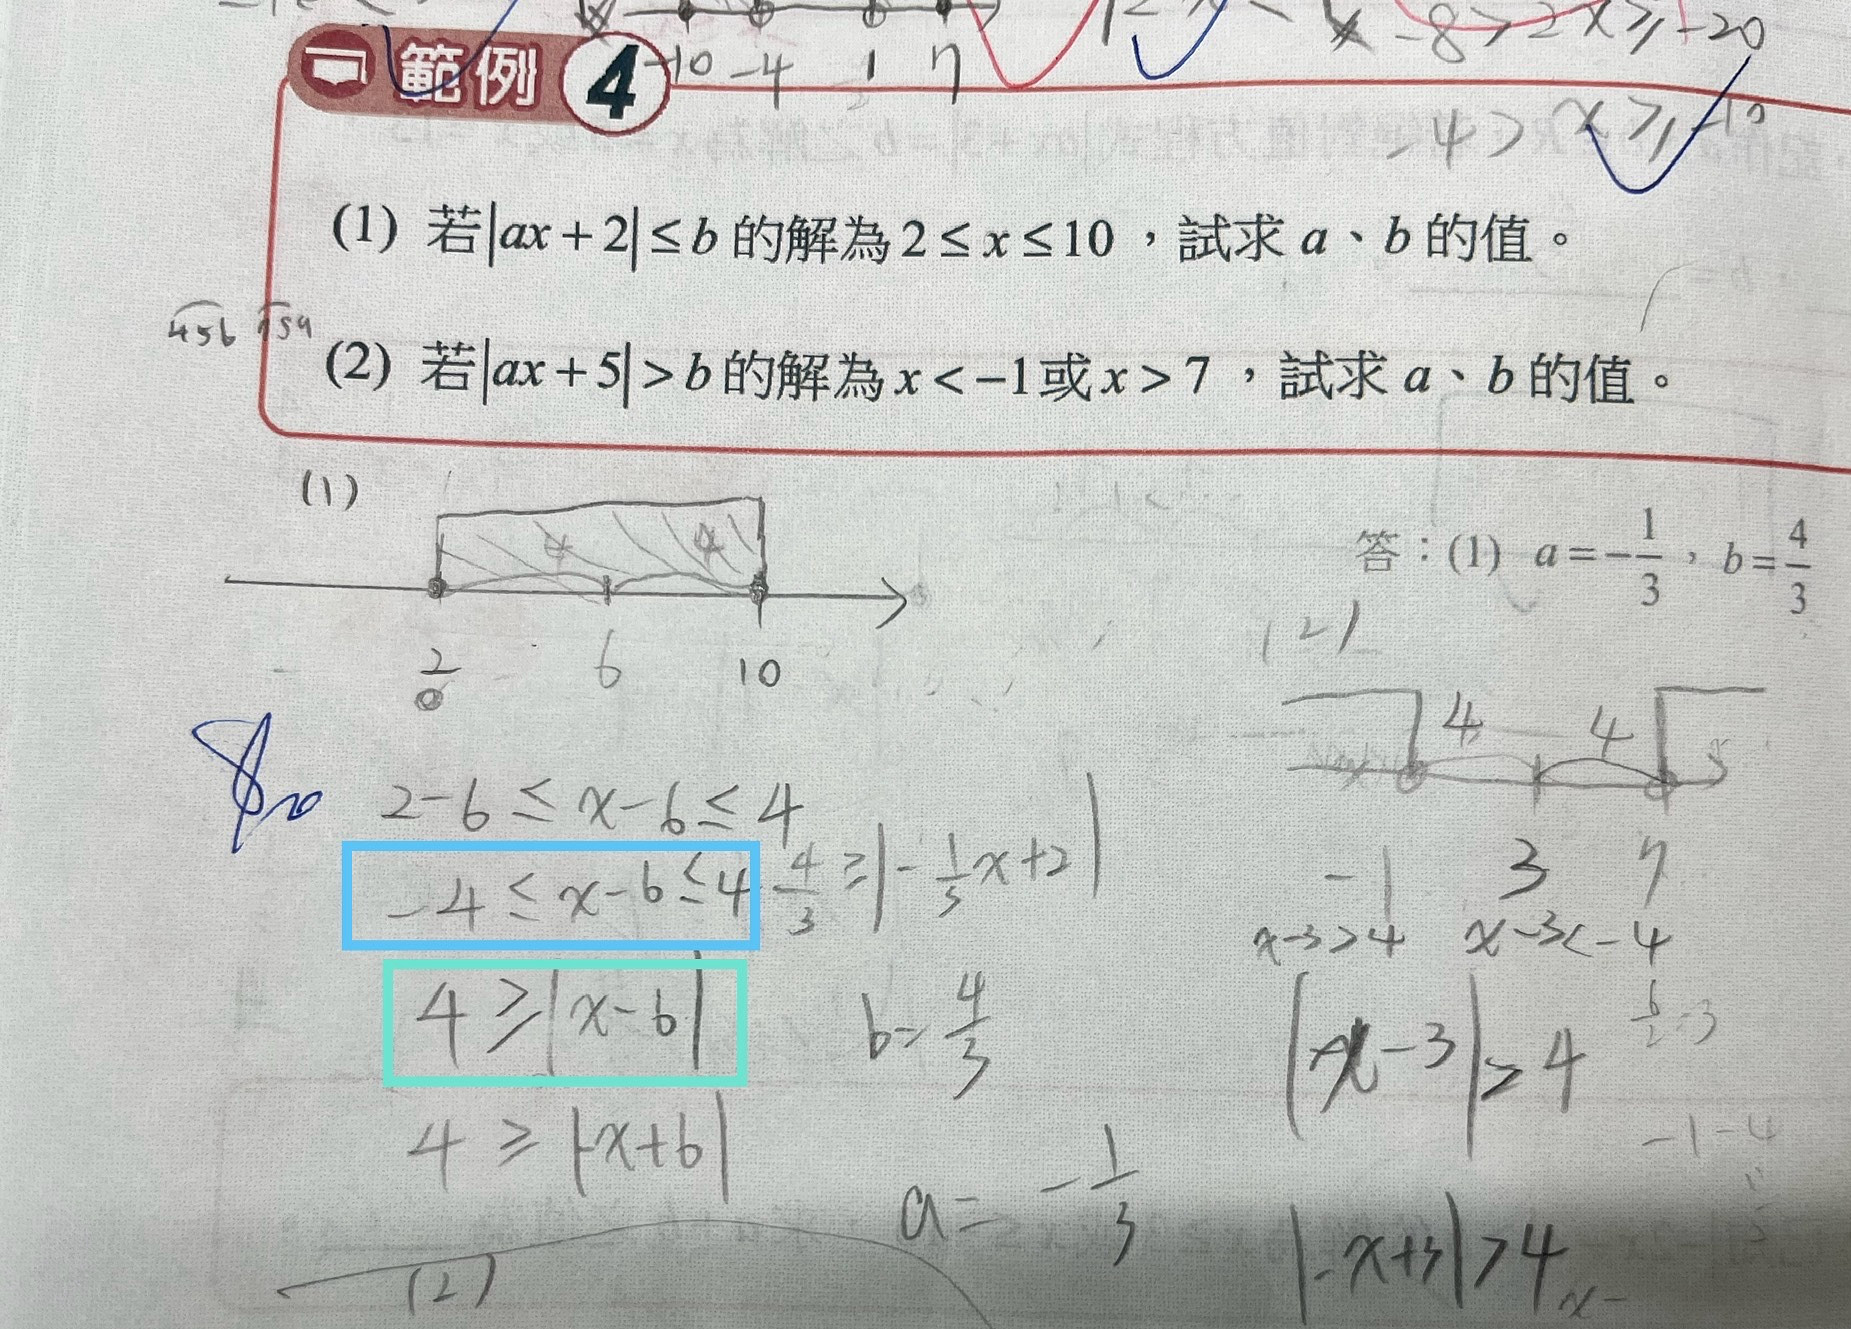 -10 -4 1 7
-8 > 2x ≥ -20
-4 > x ≥ -10
範例 4
(1) 若|ax+2|≤b 的解為 2≤x≤10，試求 a、b 的值。
(2) 若|ax+5|>b 的解為 x<-1或 x>7，試求 a、b 的值。
456
(1)
4 4
2 6 10
答：(1) a=-1/3，b=4/3
(2)
4 4
-1 3 7
2-6 ≤ x-6 ≤ 4
-4 ≤ x-6 ≤ 4
4/3 ≥ |-1/3x+2|
4 ≥ |x-6|
b=4/3
4 ≥ |-x+6|
a=-1/3
(2)
x-3>4 x-3<-4
6/2=3
|x-3|>4
-1-4
|-x+3|>4
x-